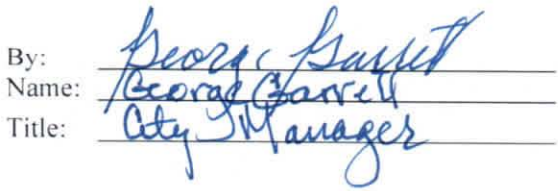 By: George Garrett
Name: George Garrett
Title: City Manager